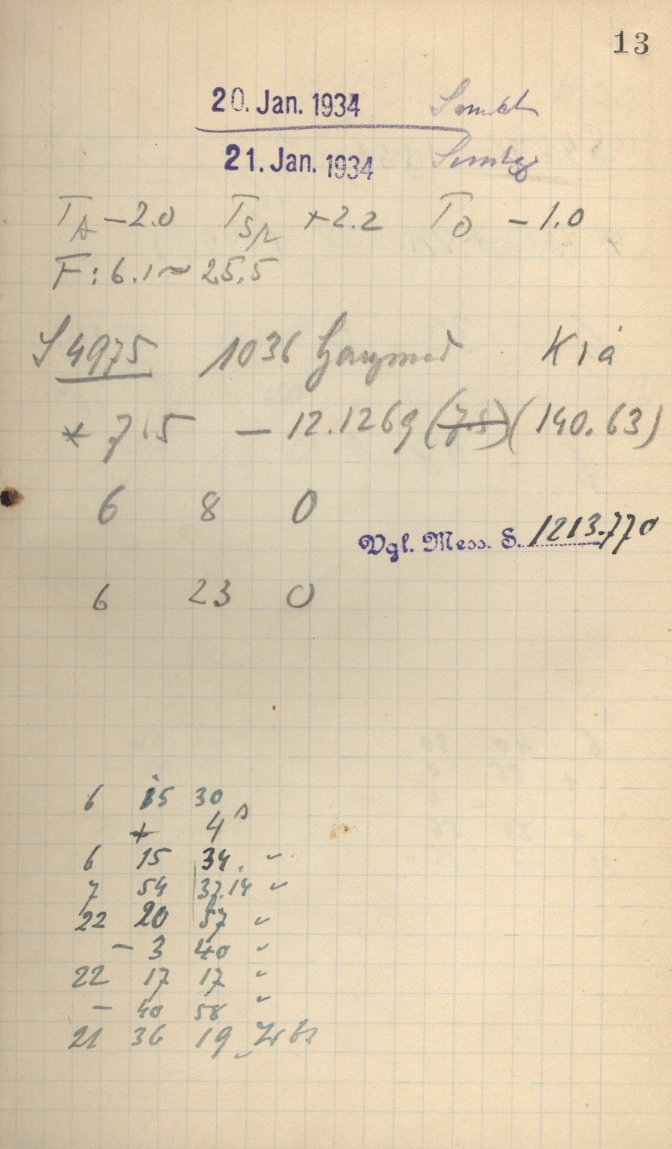 13
20. Jan. 1934
21. Jan. 1934 Sonntag
T_A -2.0 T_Sp +2.2 T_O -1.0
F: 6.1 ~ 25.5
S 4975 1036 Ganymed
* 7.5 - 12.1269 (7.5) (140.63)
6 8 0
Vgl. Mess. S. 1213.770
6 23 0
6 15 30
+ 4 s
6 15 34.
7 54 37.14
22 20 57
- 3 40
22 17 17
- 40 58
21 36 19